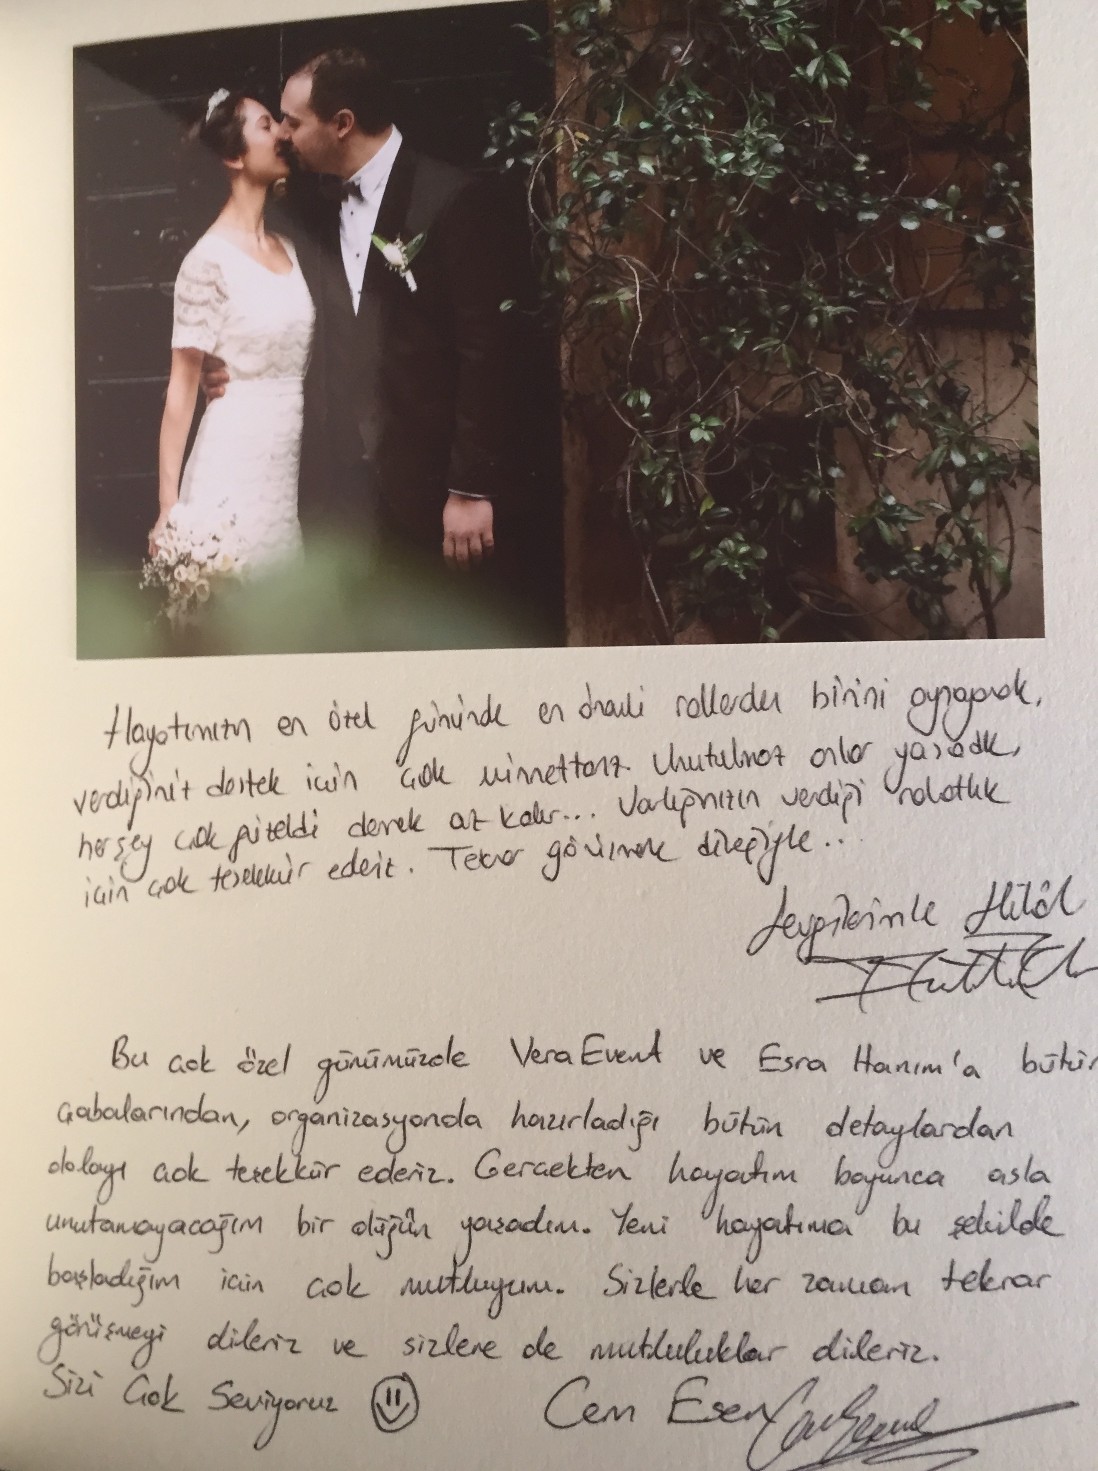 Hayatımızın en özel gününde en önemli rollerden birini oynayarak,
verdiğiniz destek için çok minnettarız. Unutulmaz anlar yaşadık,
herşey çok güzeldi demek az kalır... Varlığınızın verdiği rahatlık
için çok teşekkür ederiz. Tekrar görüşmek dileğiyle...
Sevgilerimle Hilâl
Bu çok özel günümüzde Vera Event ve Esra Hanım'a bütün
çabalarından, organizasyonda hazırladığı bütün detaylardan
dolayı çok teşekkür ederiz. Gerçekten hayatım boyunca asla
unutamayacağım bir düğün yaşadım. Yeni hayatıma bu şekilde
başladığım için çok mutluyum. Sizlerle her zaman tekrar
görüşmeyi dileriz ve sizlere de mutluluklar dileriz.
Sizi Çok Seviyoruz
Cem Esen